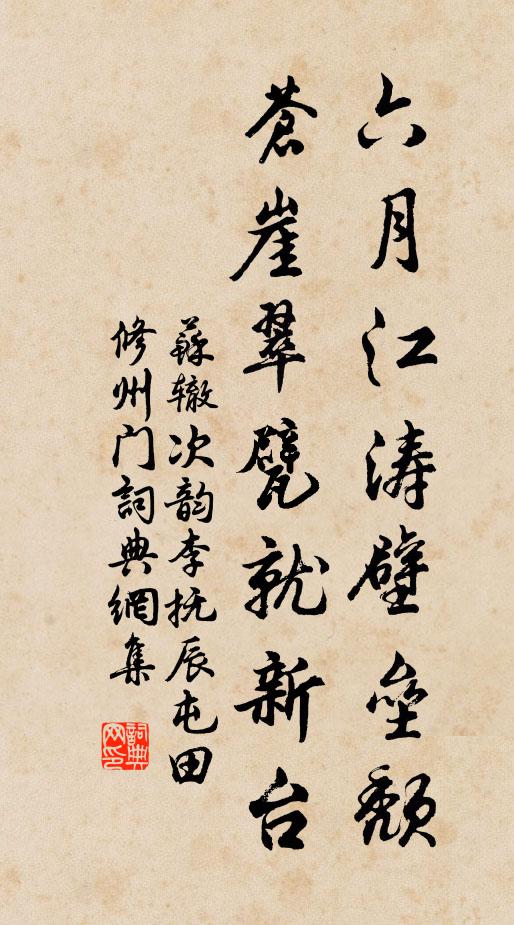 六月江涛壁垒颓
苍崖翠甓就新台
蘇辙次韵李抚辰屯田
修州门詞典網集
詞典网印